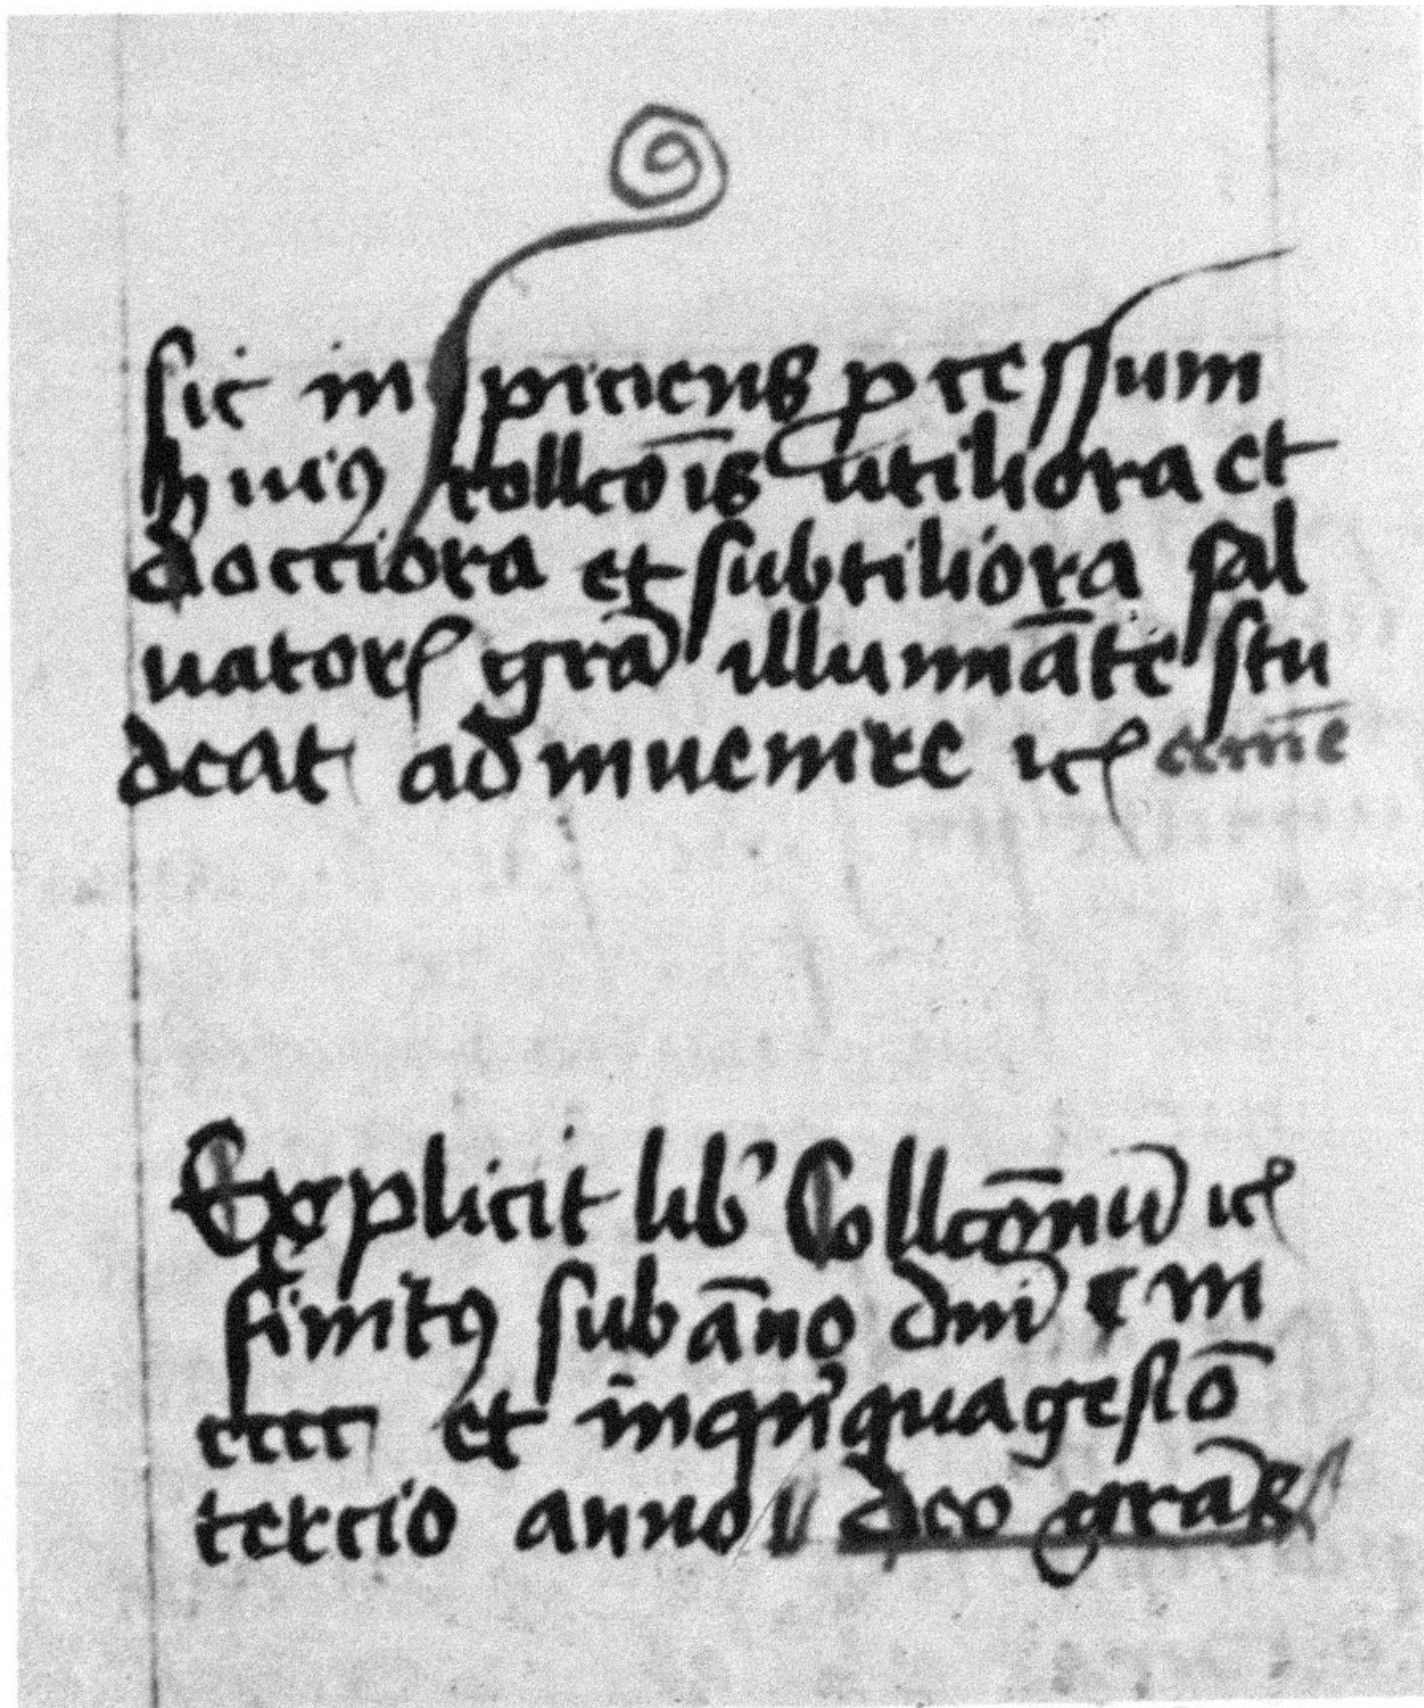 Sic inspiciens processum
huiꝰ collc̄ois utiliora et
doctiora et subtiliora sal
uatorꝭ grā illumīate stu
deat adinuenire ꝛcꝭ
Explicit lib' Collcōnū ꝛcꝭ
finitꝰ sub āno dnī m
cccc et inqⁱnquagesīo
tercio anno deo grās